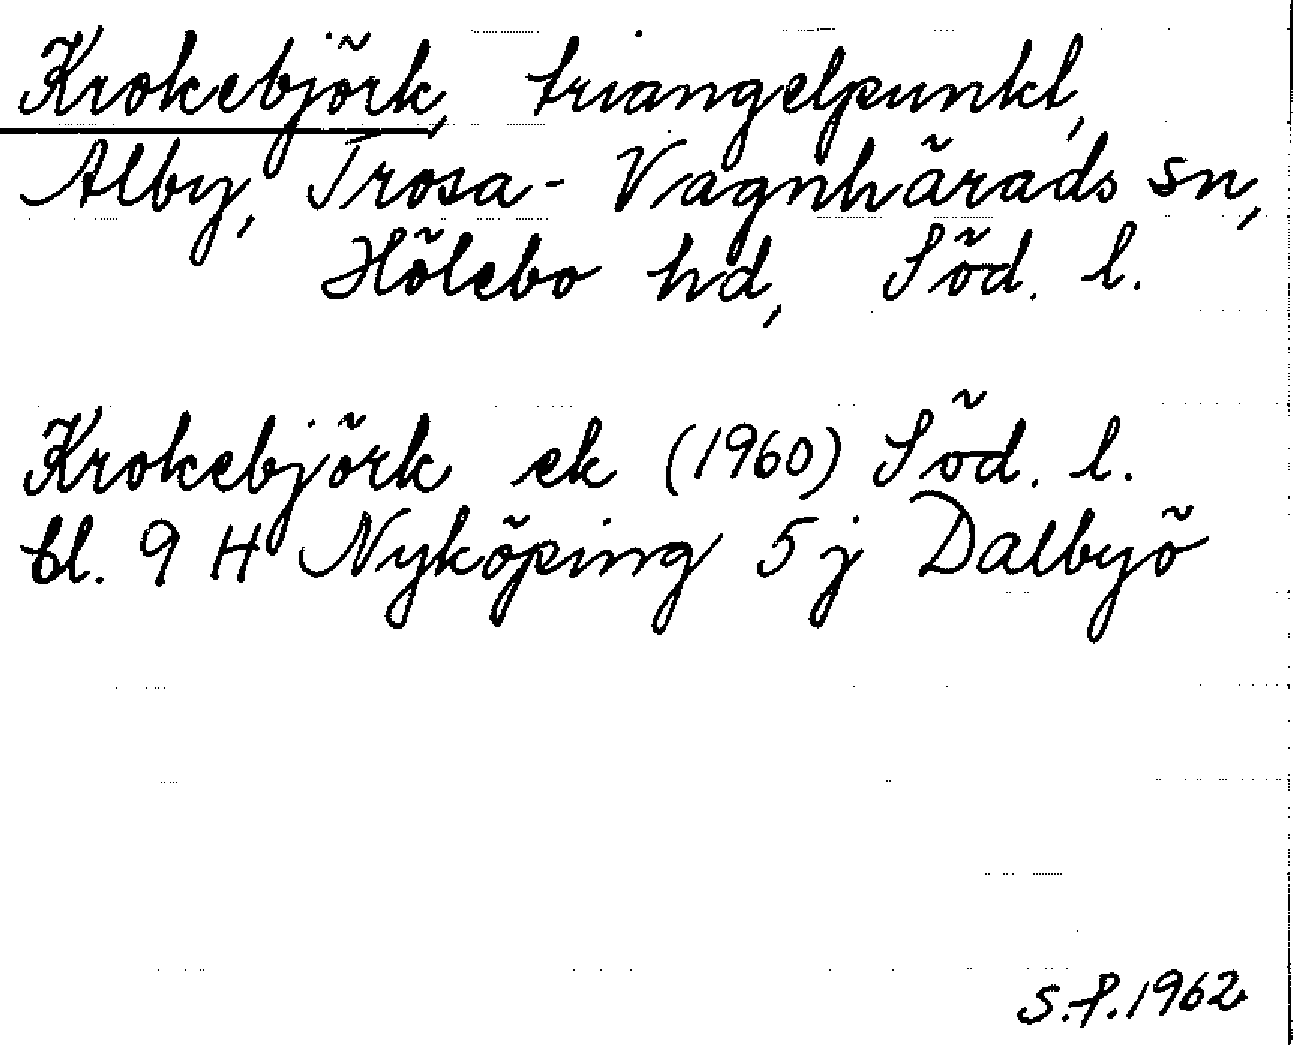 Krokebjörk, triangelpunkt,
Alby, Trosa-Vagnhärads sn,
Hölebo hd, Söd. l.
Krokebjörk ek (1960) Söd. l.
bl. 9 H Nyköping 5 j Dalbyö
S.P.1962